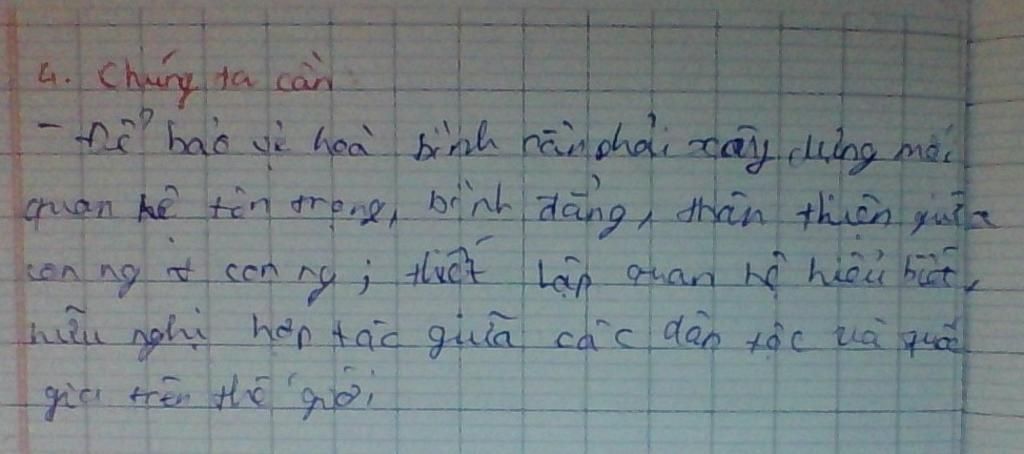 4. Chúng ta cần
- Để bảo vệ hoà bình cần phải xây dựng mối
quan hệ tôn trọng, bình đẳng, thân thiện giữa
con ng với con ng; thiết lập quan hệ hiểu biết,
hữu nghị hợp tác giữa các dân tộc và quốc
gia trên thế giới